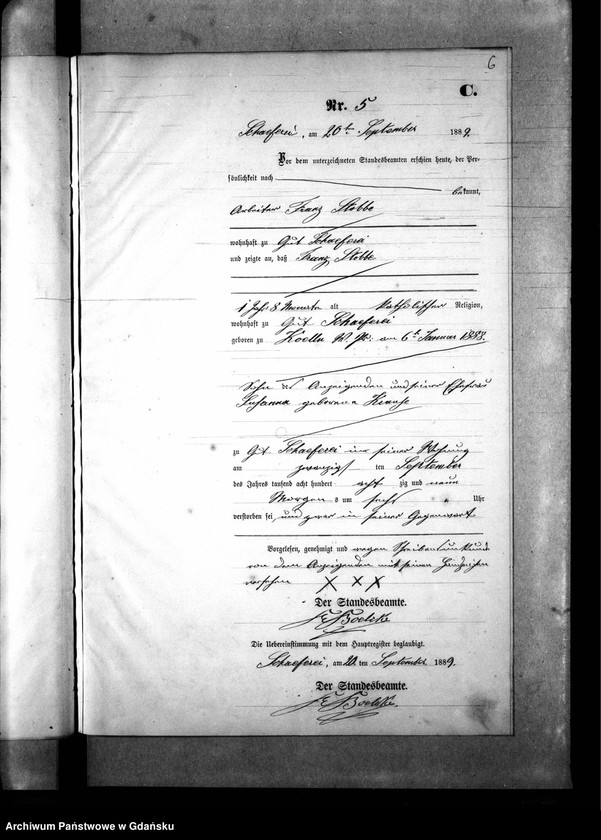 6
C.
Nr. 5
Schaeferei, am 20ten September 1889.
Vor dem unterzeichneten Standesbeamten erschien heute, der Per-
sönlichkeit nach
bekannt,
Arbeiter Franz Stobbe
wohnhaft zu Gut Schaeferei
und zeigte an, daß Franz Stobbe
1 Jahr 8 Monate alt katholischer Religion,
wohnhaft zu Gut Schaeferei
geboren zu W. Pr. am 6t Januar 1888.
Sohn des Anzeigenden und seiner Ehefrau
Susanna geborene Krause
zu Gut Schaeferei in seiner Wohnung
am zwanzigsten September
des Jahres tausend acht hundert achtzig und neun
Morgens um sechs Uhr
verstorben sei, und zwar in seiner Gegenwart
Vorgelesen, genehmigt und wegen Schreibensunkunde
von dem Anzeigenden mit seinen Handzeichen
versehen X X X
Der Standesbeamte.
Boelcke
Die Uebereinstimmung mit dem Hauptregister beglaubigt.
Schaeferei, am 20. ten September 1889.
Der Standesbeamte.
Boelcke.
Archiwum Państwowe w Gdańsku